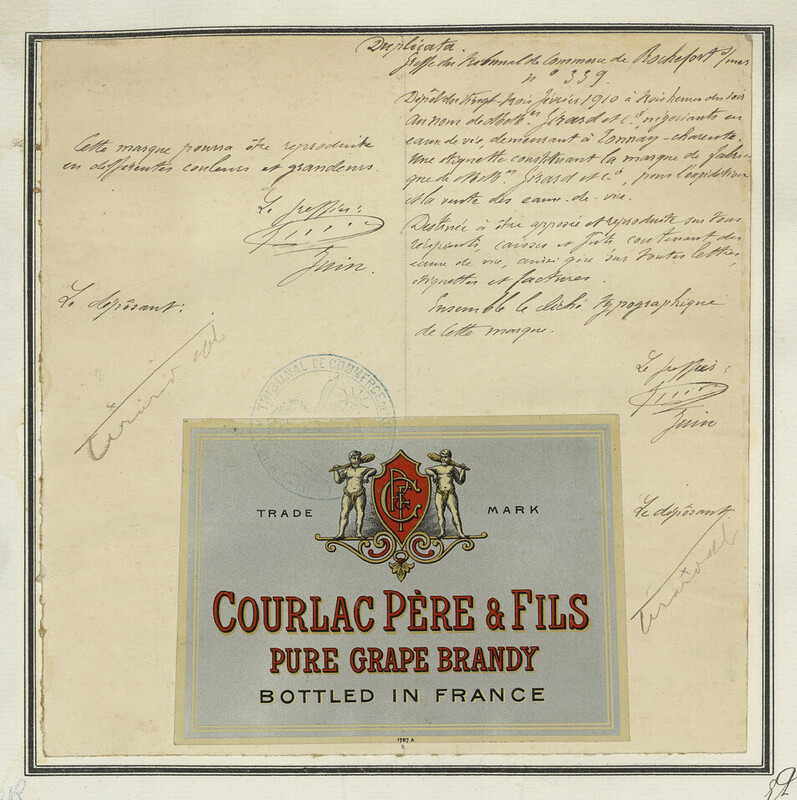 Duplicata.
Greffe du Tribunal de Commerce de Rochefort s/mer
n° 339.
Dépôt du vingt-trois février 1910 à trois heures du soir
Au nom de MM. Girard et Cie, négociants en
eaux de vie, demeurant à Tonnay-Charente.
Une étiquette constituant la marque de fabri-
que de MM. Girard et Cie, pour l'expédition
et la vente des eaux-de-vie.
Destinée à être apposée et reproduite sur tous
récipients, caisses et fûts contenant des
eaux de vie, ainsi que sur toutes lettres,
étiquettes et factures.
Ensemble le cliché typographique
de cette marque.
Le greffier:
Juin
Le déposant
Cette marque pourra être reproduite
en différentes couleurs et grandeurs.
Le greffier:
Juin.
Le déposant:
TRIBUNAL DE COMMERCE
TRADE MARK
COURLAC PÈRE & FILS
PURE GRAPE BRANDY
BOTTLED IN FRANCE
1787 A